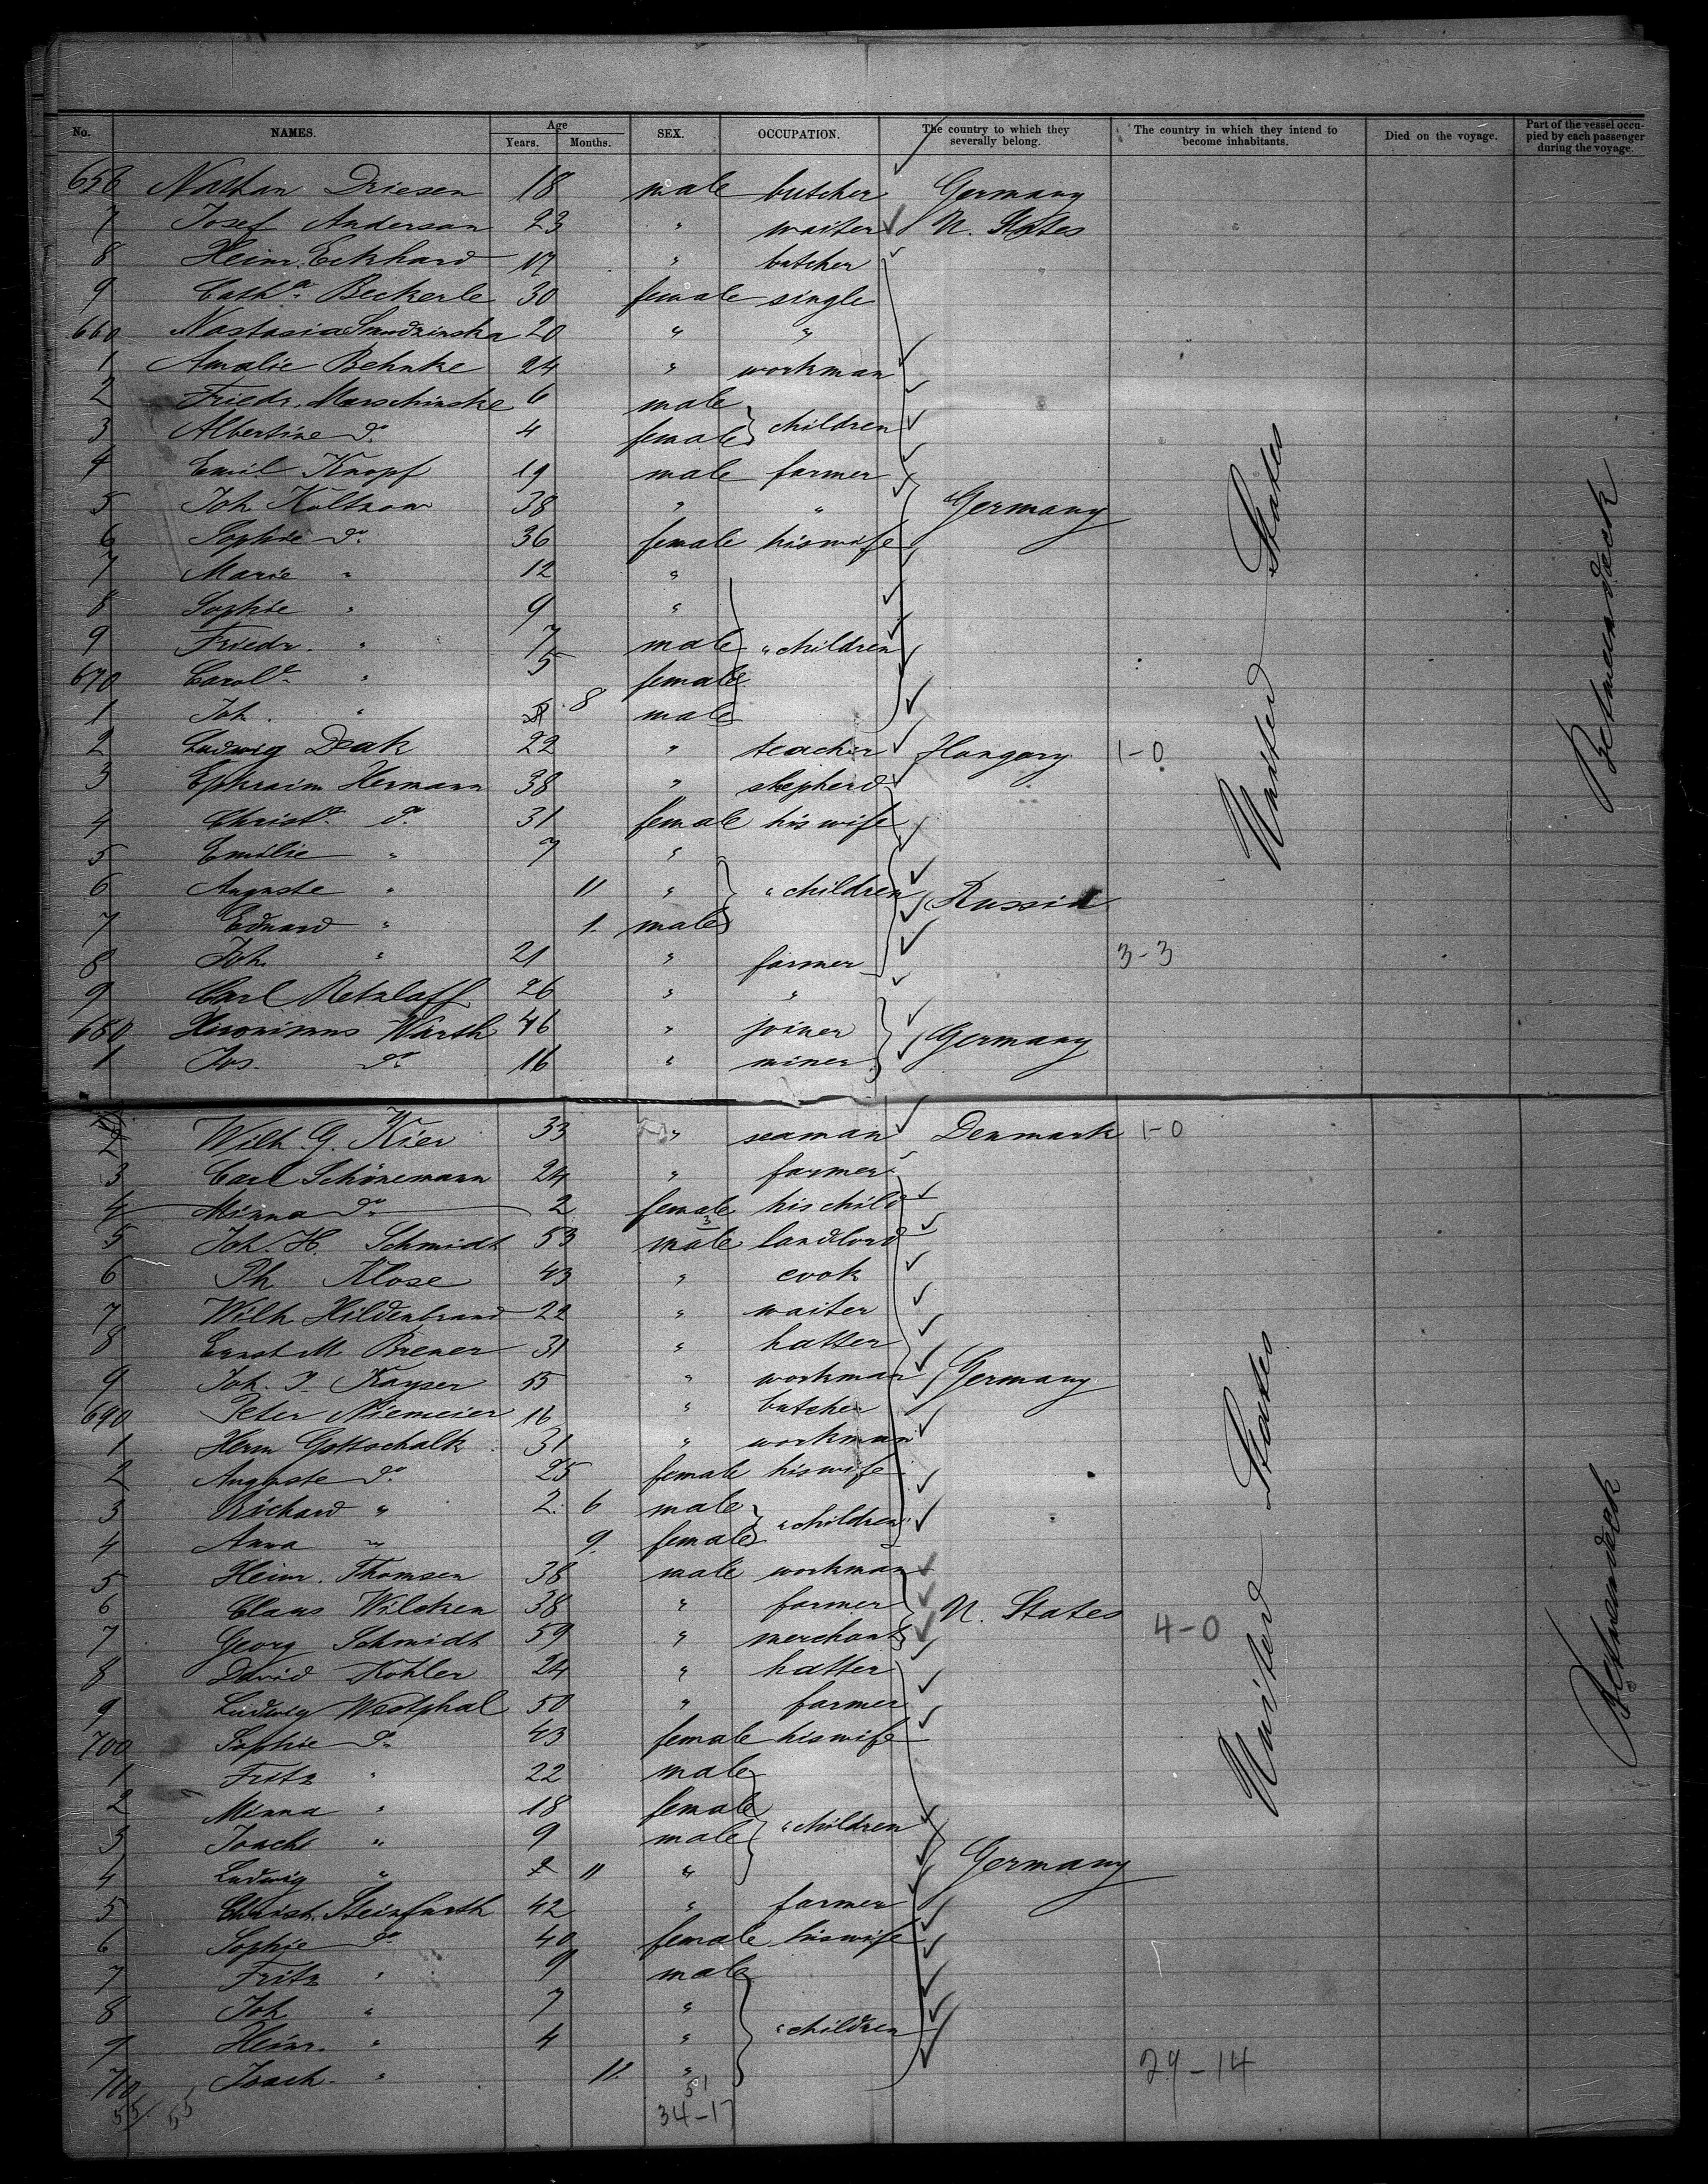 No. NAMES. Age Years. Months. SEX. OCCUPATION. The country to which they severally belong. The country in which they intend to become inhabitants. Died on the voyage. Part of the vessel occupied by each passenger during the voyage.
656 Nathan Driesen 18 male butcher Germany
7 Josef Anderson 23 " waiter U. States
8 Heinr. Eckhard 17 " butcher
9 Cath.a Beckerle 30 female single
660 Nastasia 20 " "
1 Amalie Behnke 24 " workman
2 Friedr. Marschinske 6 male
3 Albertine do. 4 female children
4 Emil Knopf 19 male farmer
5 Joh. Koltzow 38 " " Germany
6 Sophie do. 36 female his wife
7 Marie " 12 "
8 Sophie " 9 "
9 Friedr. " 7 male " children
670 Carol.e " 5 female
1 Joh. " 8 male
2 Ludwig Deak 22 " teacher Hungary 1-0
3 Ephraim Hermann 38 " shepherd
4 Christ.e do. 31 female his wife
5 Emilie " 7 "
6 Auguste " 11 " " children Russia
7 Eduard " 1. male
8 Joh. " 21 " farmer 3-3
9 Carl Retzlaff 26 " "
680 Hieronimus Warth 46 " joiner Germany
1 Jos. do. 16 " miner
United States
Between deck
2 Wilh. G. Kier 33 " seaman Denmark 1-0
3 Carl Schönemann 24 " farmer
4 Minna do. 2 female his child
3
5 Joh. H. Schmidt 53 male landlord
6 Ph. Klose 43 " cook
7 Wilh. Hildenbrand 22 " waiter
8 Ernst M. Brener 31 " hatter
9 Joh. J. Kayser 55 " workman Germany
690 Peter Niemeier 16 " butcher
1 Herm. Gottschalk 31 " workman
2 Auguste do. 25 female his wife
3 Richard " 2. 6 male
4 Anna " 9. female " children
5 Heinr. Thomsen 38 male workman
6 Claus Wilcken 38 " farmer U. States
7 Georg Schmidt 59 " merchant 4-0
8 David Kohler 24 " hatter
9 Ludwig Westphal 50 " farmer
700 Sophie do. 43 female his wife
1 Fritz " 22 male
2 Minna " 18 female
3 Joach. " 9 male " children
4 Ludwig " 11 " Germany
5 Christ. Steinfurth 42 " farmer
6 Sophie do. 40 female his wife
7 Fritz " 9 male
8 Joh. " 7 "
9 Heinr. " 4 " " children
710 Joach. " 11. " 29-14
55 55 51
34-17
United States
Between deck